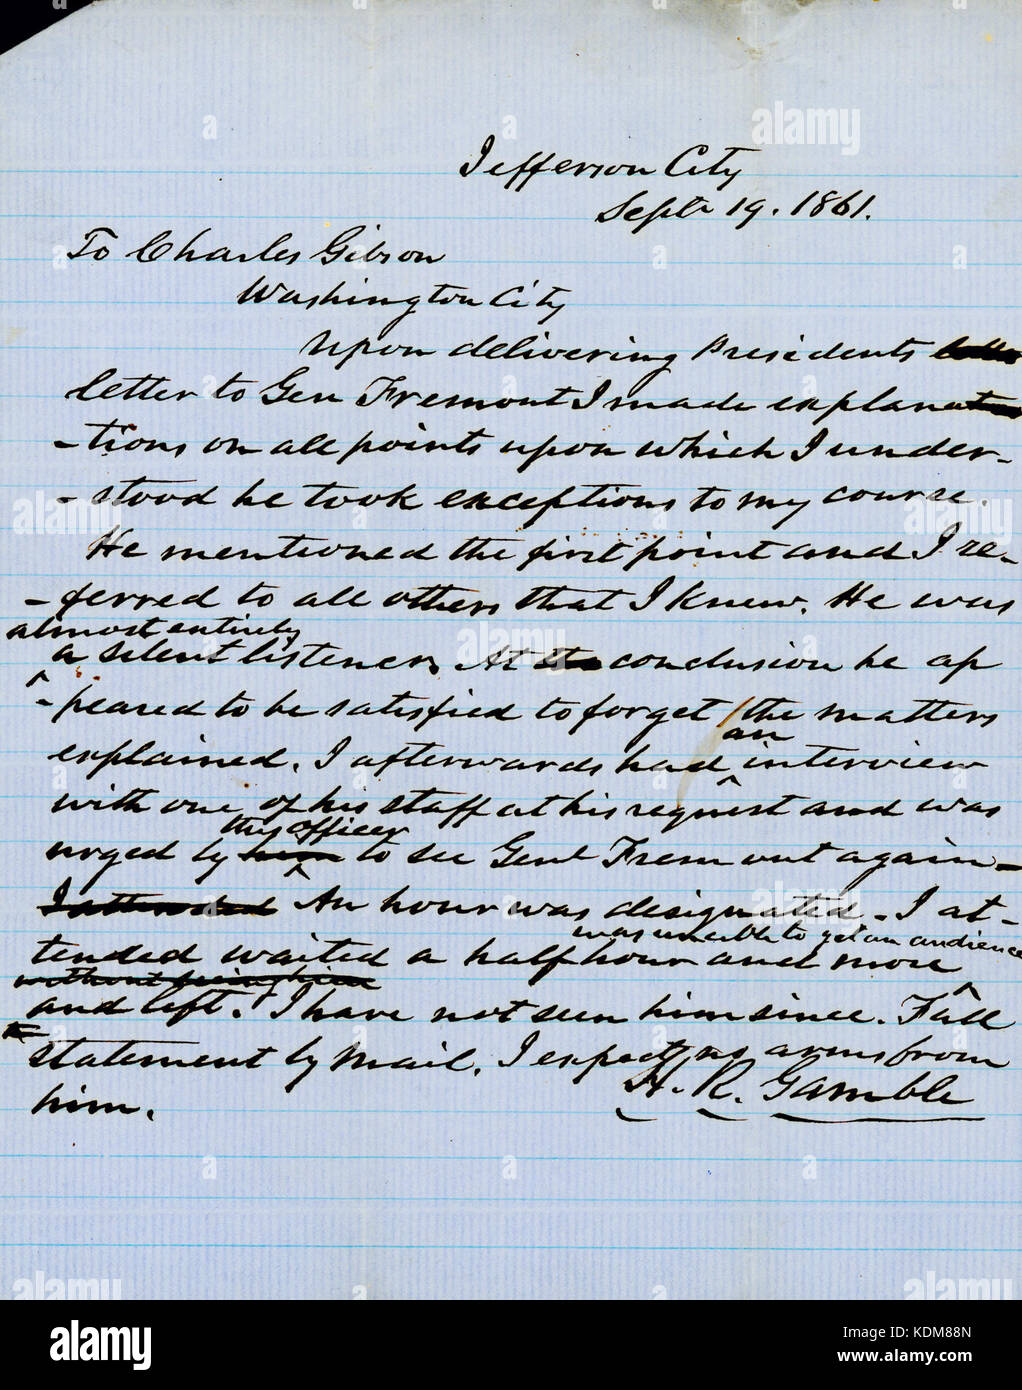 Jefferson City
Sept 19. 1861.
To Charles Gibson
Washington City
Upon delivering Presidents
letter to Gen Fremont I made explana
-tions on all points upon which I under-
-stood he took exceptions to my course.
He mentioned the first point and I re-
-ferred to all others that I knew. He was
almost entirely
a silent listener. At the conclusion he ap
-peared to be satisfied to forget the matters
an
explained. I afterwards had interview
with one of his staff at his request and was
this officer
urged by him to see Genl Fremont again-
I attended An hour was designated - I at-
was unable to get an audience
tended waited a half hour and more
without seeing him
and left. I have not seen him since. Full
statement by mail. I expect no arms from
him.
H. R. Gamble
alamy
a
alamy
Image ID: KDM88N
www.alamy.com